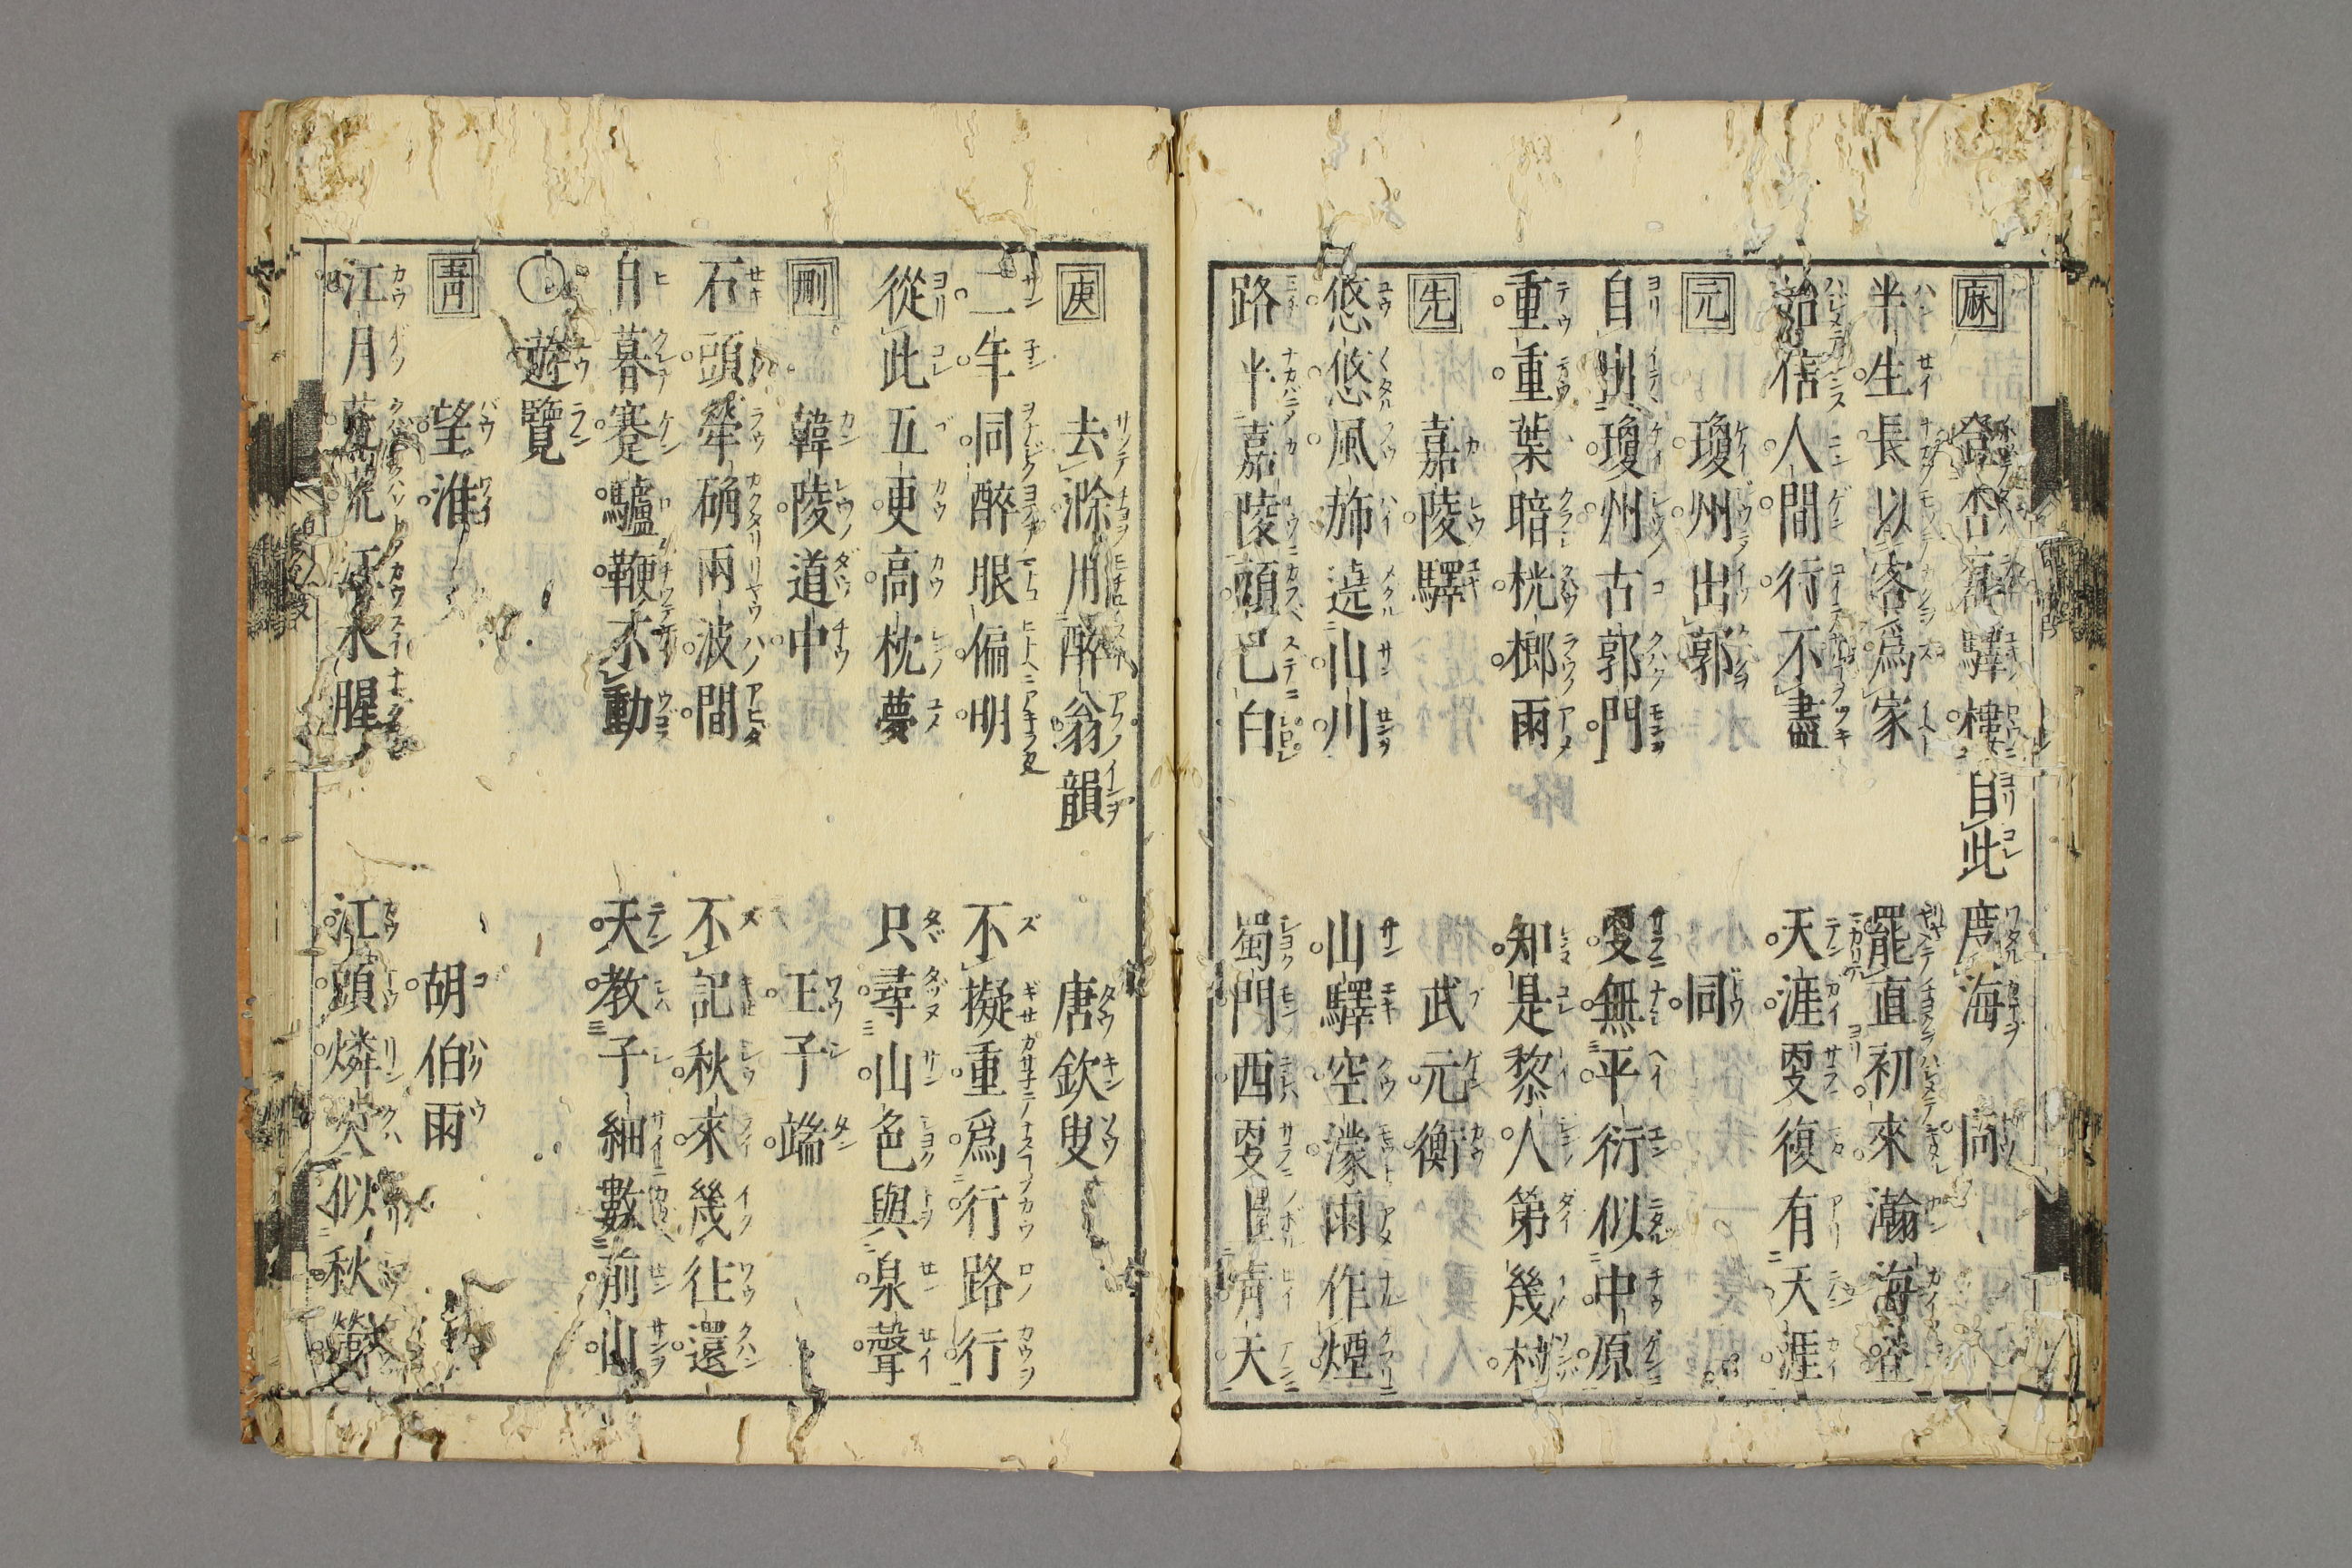 麻　宿杏磊驛樓自此度海　同
半生長以客爲家　罷直初來瀚海査
始信人間行不盡　天涯更復有天涯
元　瓊州出郭　同
自出瓊州古郭門　更無平衍似中原
重重葉暗桄榔雨　知是黎人第幾村
先　嘉陵驛　武元衡
悠悠風旆遶山川　山驛空濛雨作煙
路半嘉陵頭已白　蜀門西更上青天
庚　去滁用醉翁韻　唐欽叟
二年同醉眼偏明　不擬重爲行路行
從此五更高枕夢　只尋山色與泉聲
刪　韓陵道中　王子端
石頭犖确兩波間　不記秋來幾往還
日暮蹇驢鞭不動　天教子細數前山
〇遊覽
青　望淮　胡伯雨
江月荒荒江水腥　江頭燐火似秋螢